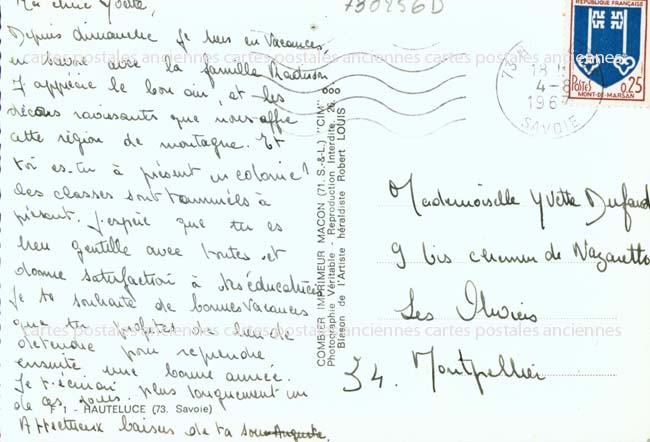 Ma chère Yvette,
Depuis dimanche je suis en vacances,
en Savoie avec la famille
J'apprécie le bon air, et les
décors ravissants que nous offre
cette région de montagne. Et
toi es-tu à présent en colonie?
des classes sont terminées à
présent. J'espère que tu es
bien gentille avec toutes et
donne satisfaction à tes éducatrices
Je te souhaite de bonnes vacances
que tu profites de bien te
détendre pour reprendre
ensuite une bonne année.
Je t'écrirai plus longuement un
de ces jours.
F 1 - HAUTELUCE (73. Savoie)
Affectueux baisers de ta soeur
730256D
COMBIER IMPRIMEUR MACON (71. S.-&-L.) "CIM"
Photographie Véritable - Reproduction Interdite.
Blason de l'Artiste héraldiste Robert LOUIS
RÉPUBLIQUE FRANÇAISE
POSTES 0,25
MONT-DE-MARSAN
73
18 H
4-8
196
SAVOIE
Mademoiselle Yvette
9 bis chemin de Nazareth
Les
34. Montpellier
cartes postales anciennes cartes postales anciennes cartes postales anciennes
cartes postales anciennes cartes postales anciennes cartes postales anciennes